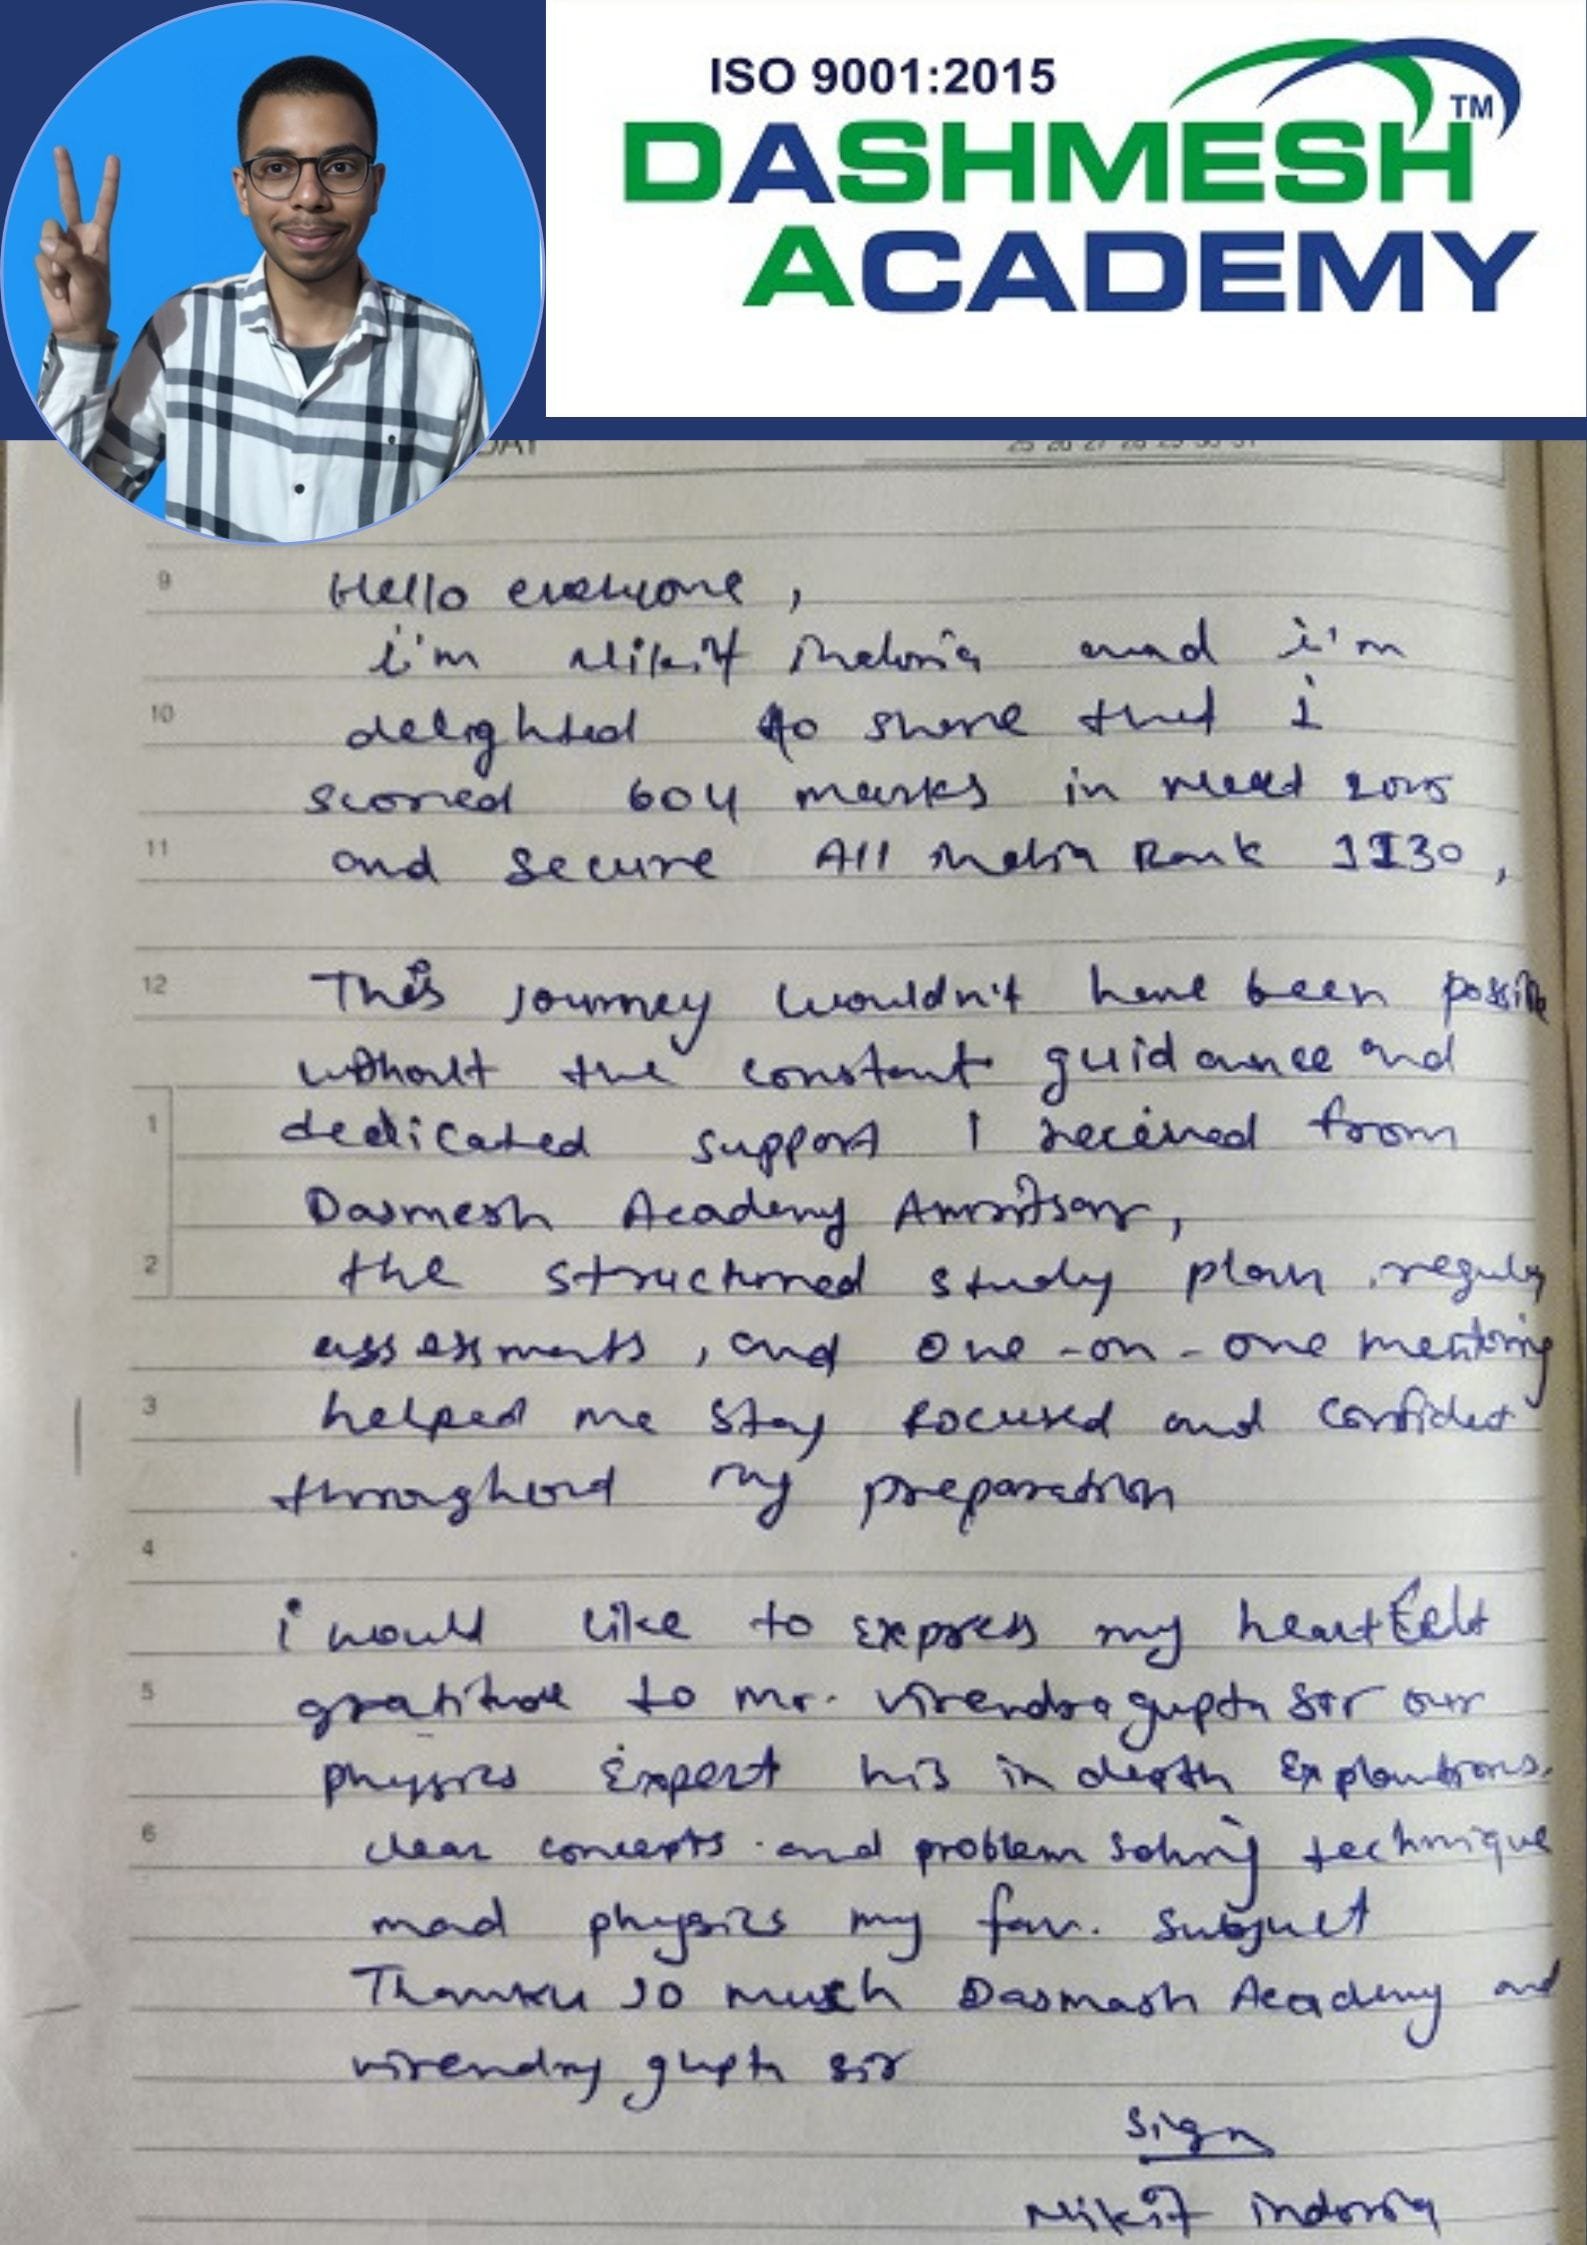 ISO 9001:2015
DASHMESH TM
ACADEMY
DAY
25 26 27 28 29 30 31
9
Hello everyone,
i'm Nikit indoria and i'm
10
delighted to share that i
scored 604 marks in need 2025
11
and secure All india Rank 1130,
12
This journey wouldn't have been possible
without the constant guidance and
1
dedicated support I received from
Dasmesh Academy Amritsar,
2
the structured study plan, regular
assessments, and one-on-one mentoring
3
helped me stay focused and confident
throughout my preparation
4
i would like to express my heartfelt
5
gratitude to mr. virendra gupta sir our
physics Expert his in depth Explantions,
6
clear concepts and problem solving technique
mad physics my fav. subject
Thanku so much Dasmash Academy and
virendra gupta sir
Sign
Nikit indoria